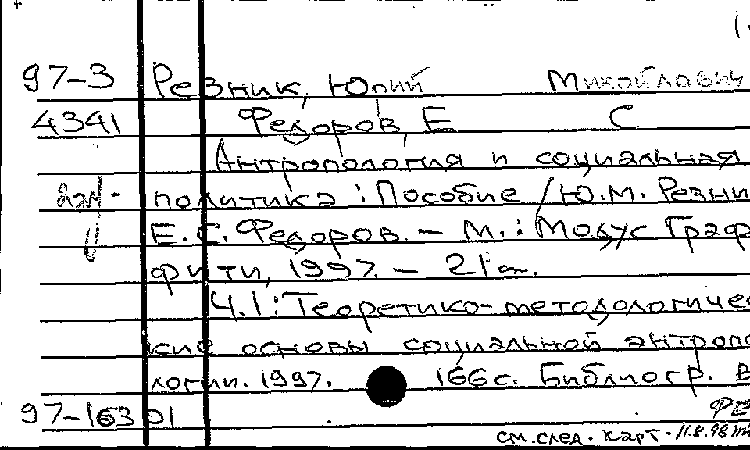 97-3 Резник, Юрий Михайлович
4341 Федоров, Е С
Антропология и социальная
политика : Пособие / Ю.М. Резни
Е.С. Федоров. – М. : Модус Граф
фити, 1997. – 21 см.
Ч.1 : Теоретико-методологичес
кие основы социальной антропо
логии. 1997. 166 с. Библиогр. в
97-16301 ФЕ
см. след. карт. 11.8.98